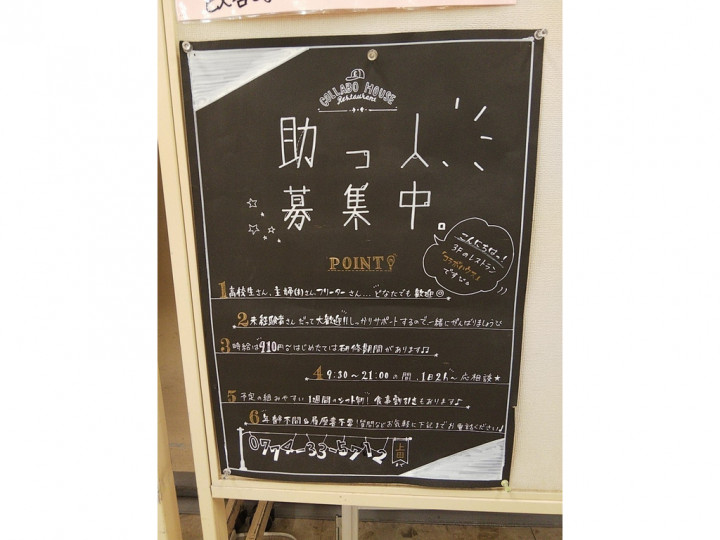 COLLABO HOUSE
Restaurant
助っ人、
募集中。
こんにちはっ!
3Fのレストラン
"コラボハウス"
ですっ。
POINT!
1 高校生さん、主婦(夫)さん、フリーターさん…どなたでも歓迎
2 未経験者さんだって大歓迎!!しっかりサポートするので一緒にがんばりましょう
3 時給は¥910円 はじめたては研修期間があります♫
4 9:30〜21:00の間、1日2h〜応相談★
5 予定の組みやすい1週間のシフト制! 食事割引きもあります♪
6 年齢不問 履歴書不要!質問などお気軽に下記までお電話ください♪
0774-33-5712
上田
まで